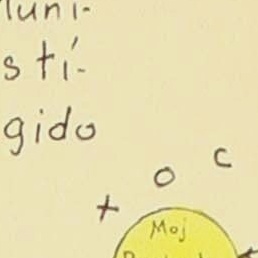 luni-
stí-
gido
+ o c
Moj